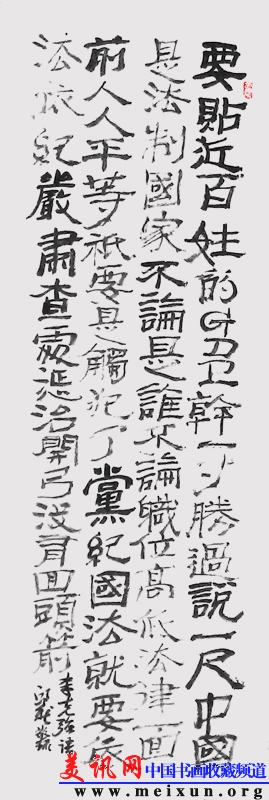 要貼近百姓的GDP幹一寸勝過說一尺中國
是法制國家不論是誰不論職位高低法律面
前人人平等祇要是觸犯了黨紀國法就要依
法依紀嚴肅查處懲治開弓沒有回頭箭
李克強語
美讯网 中国书画收藏频道
www.meixun.org